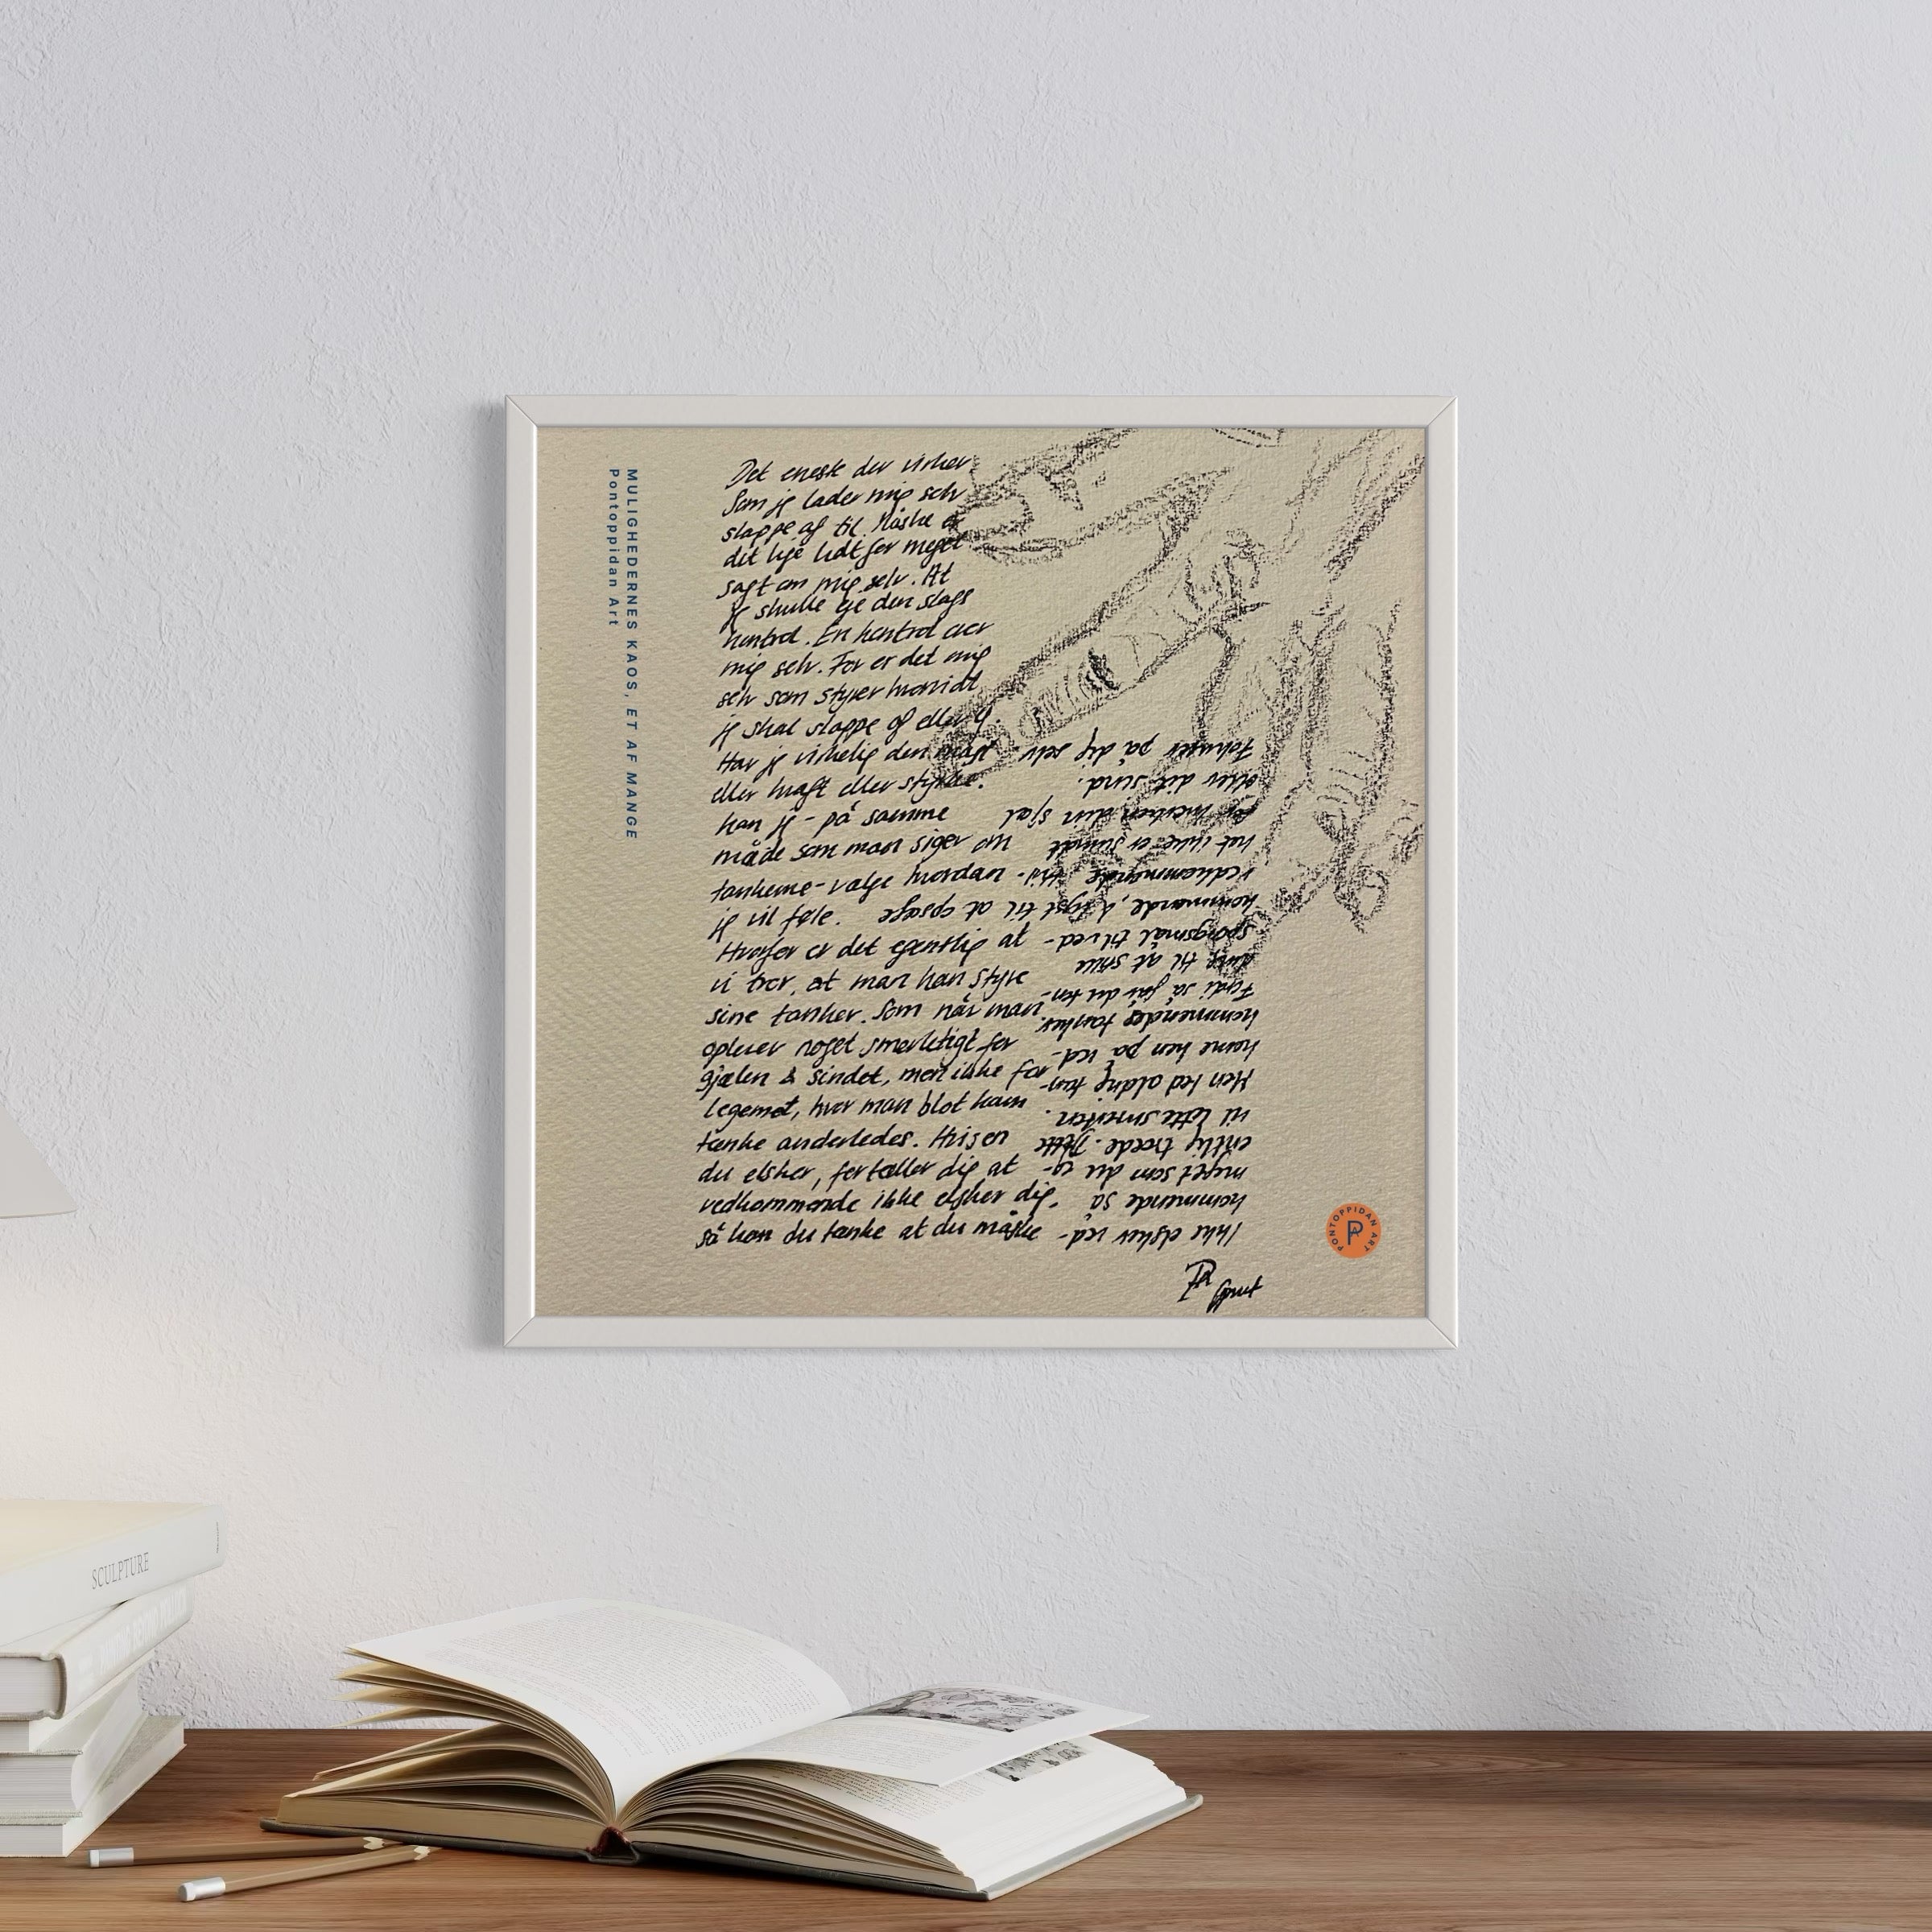 MULIGHEDERNES KAOS, ET AF MANGE
Pontoppidan Art
Det eneste der virker
Som jeg lader mig selv
slappe af til. Måske er
dit lige lidt for meget
sagt om mig selv. At
jeg skulle eje den slags
kontrol. En kontrol over
mig selv. For er det mig
selv som styrer hvorvidt
jeg skal slappe af eller ej.
Har jeg virkelig den magt
eller kraft eller styrke.
kan jeg - på samme
måde som man siger om
tankerne - vælge hvordan
jeg vil føle.
Hvorfor er det egentlig at
vi tror, at man kan styre
sine tanker. Som når man
oplever noget smerteligt for
sjælen & sindet, men ikke for
legemet, hvor man blot kan
tænke anderledes. Hvis en
du elsker, fortæller dig at
vedkommende ikke elsker dig,
så kan du tænke at du måske
ikke elsker ved-
kommende så
meget som du eg-
entlig troede. Dette
vil lette smerten.
Men led aldrig tan-
kerne hen på ved-
kommendes tanker.
Fordi så får du tan-
til at stille
spørgsmål til ved-
kommende, & lyst til at opsøge
vedkommende
hat ikke er sundt
din sjæl
eller dit sind.
Fokuser på dig selv
PONTOPPIDAN ART
PA
SCULPTURE